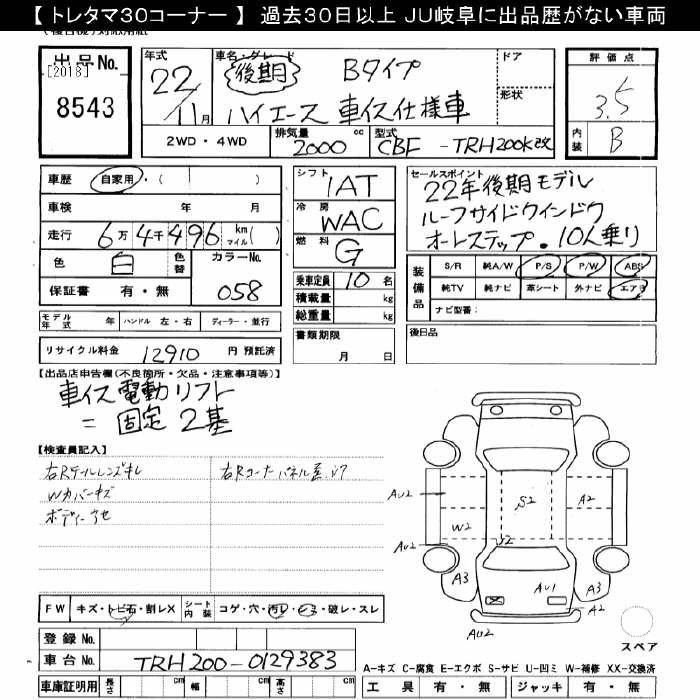 【 トレタマ30コーナー 】 過去30日以上 JU岐阜に出品歴がない車両
出品No.
[2018]
8543
年式
22/11月
車名・グレード
後期 Bタイプ
ハイエース 車イス仕様車
ドア
形状
評価点
3.5
内装
B
2WD・4WD
排気量 2000 cc
型式 CBF -TRH200K改
車歴 自家用・( )
車検 年 月
走行 6万4千496 km マイル( )
色 白 色替
カラーNo. 058
保証書 有・無
シフト 1AT
冷房 WAC
燃料 G
乗車定員 10 名
積載量 kg
総重量 kg
書類期限
月 日
セールスポイント
22年後期モデル
ルーフサイドウインドウ
オートステップ・10人乗り
装備品
S/R 純A/W P/S P/W ABS
純TV 純ナビ 革シート 外ナビ エアB
ナビ型番:
後日品
モデル年式 年 ハンドル 左・右 ディーラー・並行
リサイクル料金 12910 円 預託済
【出品店申告欄(不良箇所・欠品・注意事項等)】
車イス電動リフト
= 固定 2基
【検査員記入】
右Rテールレンズキレ
右Rコーナーパネル
Wカバーキズ
ボディー
AU2
S2
A2
W2
AU2
S2
A3
AU1
A3
A2
AU2
スペア
FW キズ・トビ石・割レX
シート内装 コゲ・穴・汚レ・シミ・破レ・スレ
登録No.
車台No. TRH200-0129383
車庫証明用 長さ cm 幅 cm 高さ cm
A-キズ C-腐食 E-エクボ S-サビ U-凹ミ W-補修 XX-交換済
工具 有・無 ジャッキ 有・無